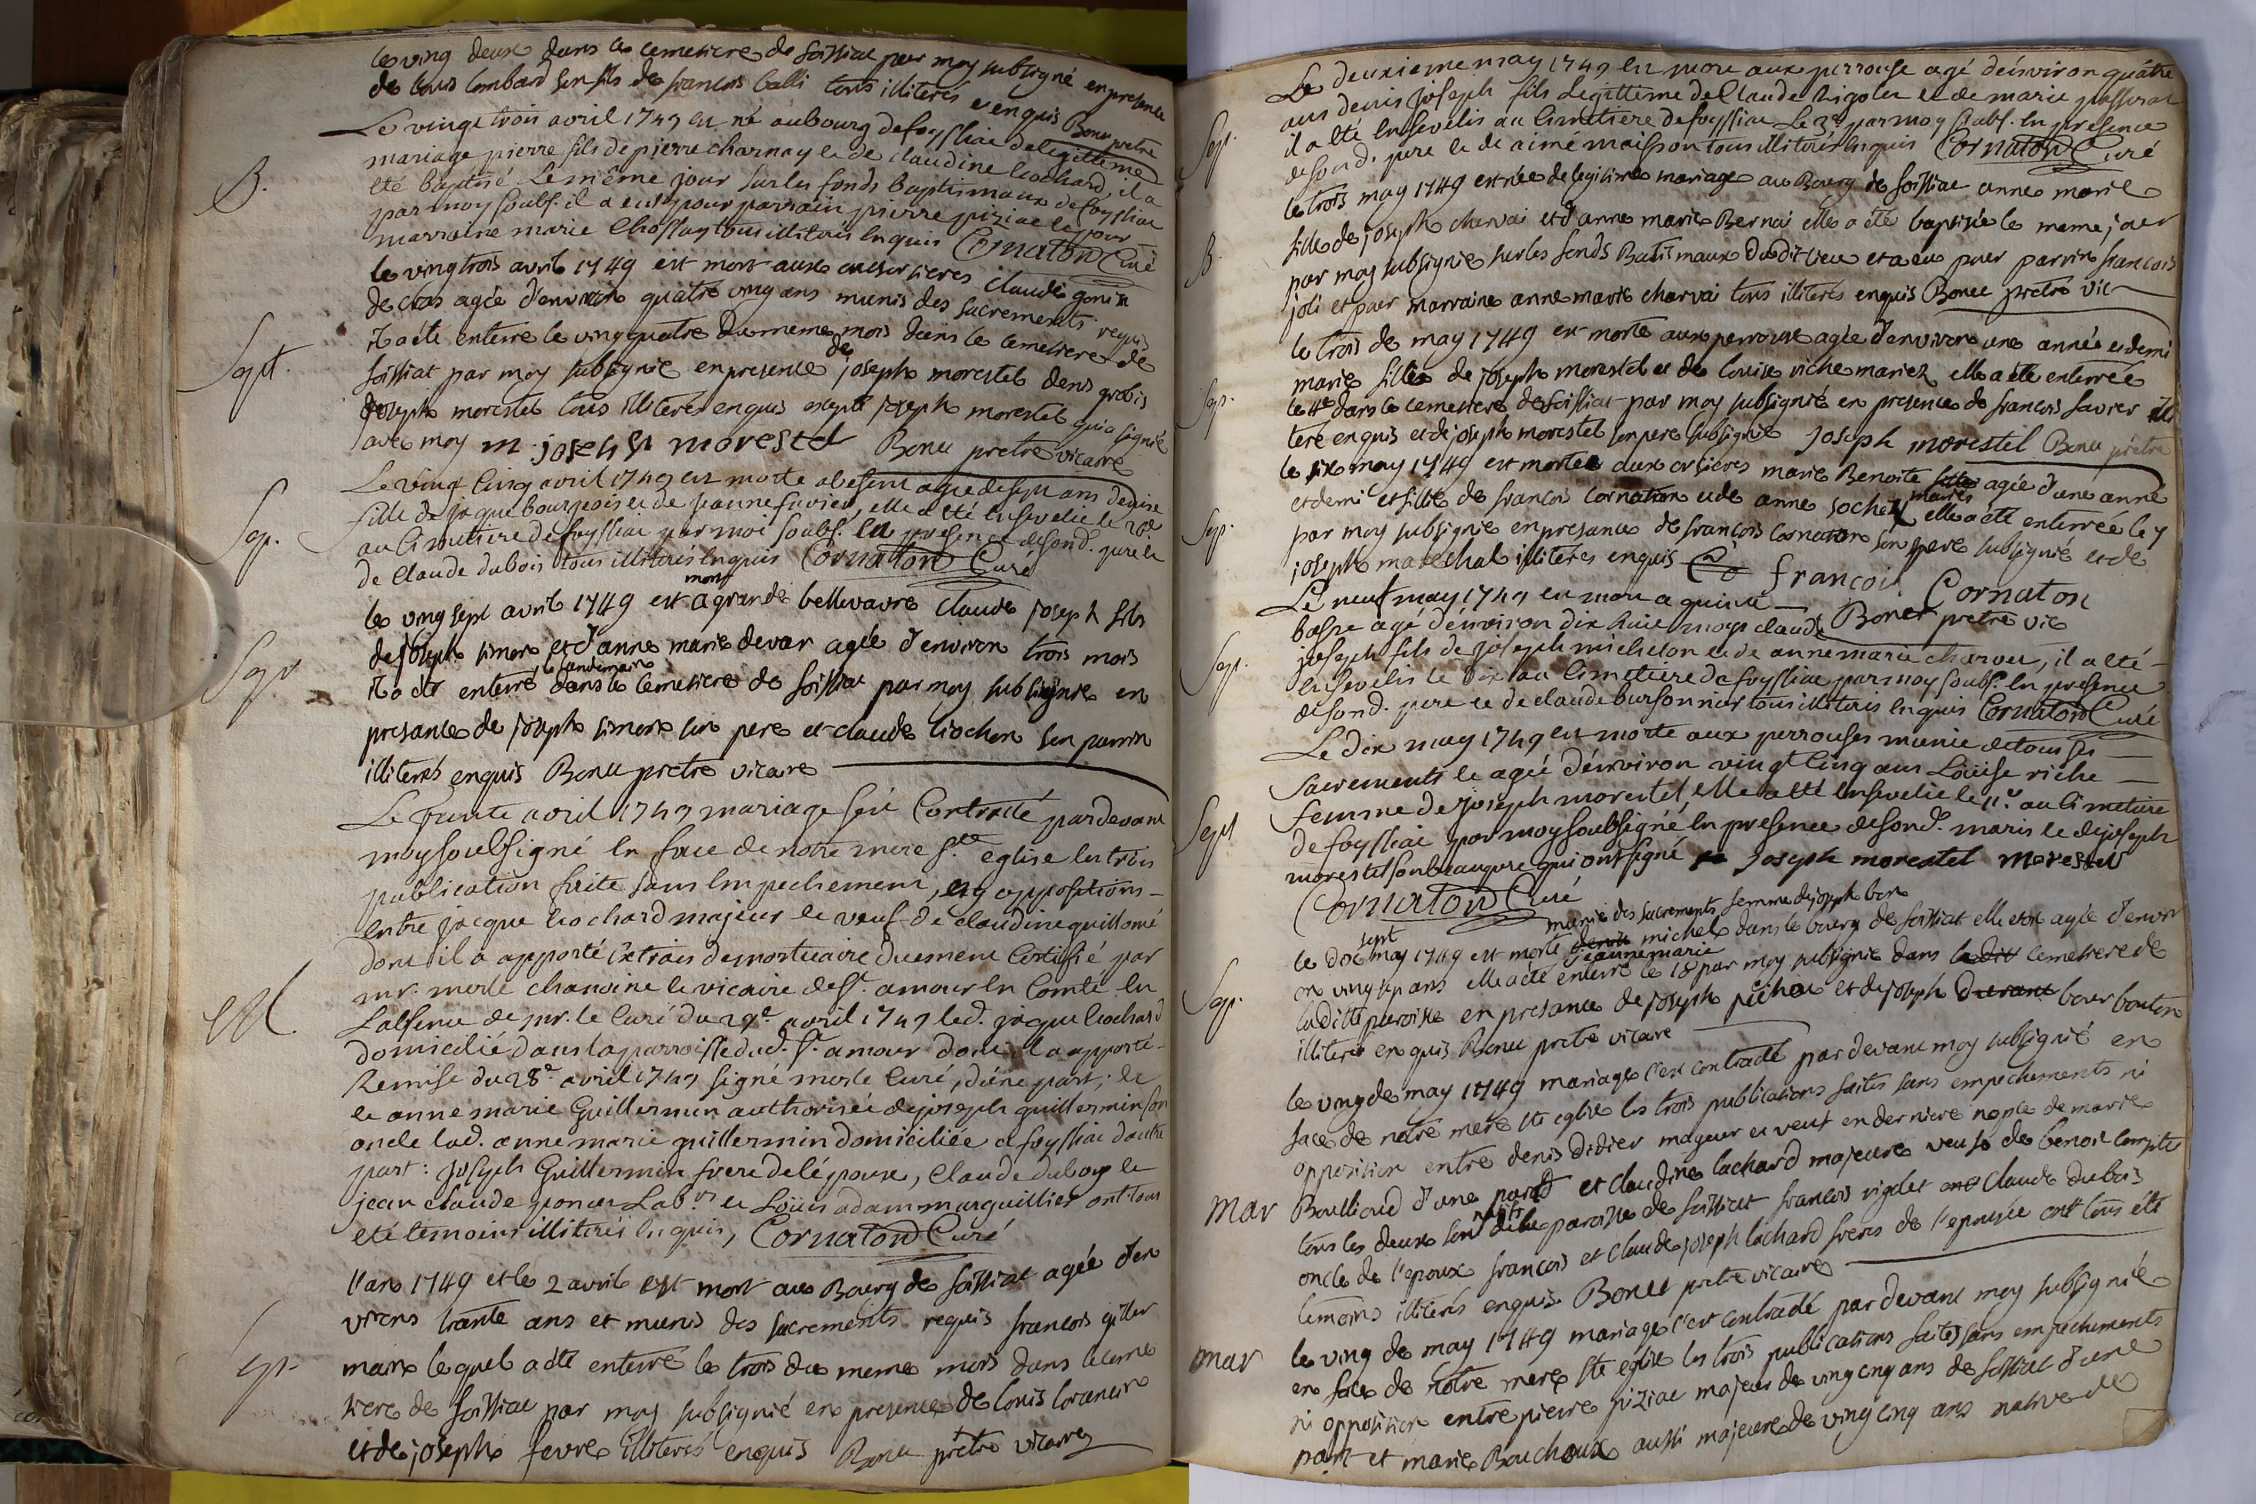 le ving deux dans le cemetiere de foissiat par moy subsigné en presence
de louis lombard son fils de francois balli tous illiterés enquis Bonu pretre
Le vingt trois avril 1749 est né au bourg de foyssiac de legittime
mariage pierre fils de pierre charnay et de claudine liochard, il a
B.
eté baptisé le même jour sur les fonds baptismaux de foyssiac
par moy soubs. il a eu pour parrain pierre piziac le jour
marraine marie tous illiterés enquis Cornaton Curé
le ving trois avril 1749 est mort aux claude gonin
de cras agée d'environ quatre ving ans munis des sacrements requis
il a eté enterré le ving quatre du meme mois dans le cemetiere de
Sept.
foissiat par moy subsignié en presence de joseph morestel dens grobis
joseph morestel tous illiterés enquis excepté joseph morestel qui a signié
avec moy m. joseph morestel Bonu pretre vicaire
Le vingt cinq avril 1749 est morte agée de sept ans denise
fille de jaque bourgeois et de jeanne fuvier, elle a eté ensevelie le 26e
Sep.
au cimetiere de foyssiac par moi soubs. en presence de sond. pere et
de claude dubois tous illiterés enquis Cornaton Curé
le ving sept avril 1749 est mort a grande bellevavre claude joseph fils
de joseph simore et d'anne marie devar agée d'environ trois mois
Sep.
il a eté enterré le landemain dans le cemetiere de foissiat par moy subsignié en
presance de joseph simore son pere et claude liochon son parrin
illiterés enquis Bonu pretre vicaire
Le trente avril 1749 mariage s'est Contracté par devant
moy soubsigné en face de notre mere Ste eglise les trois
publication faite sans empechement, ny oppositions
entre jacque liochard majeur et veuf de claudine guillomé
dont il a apporté extrais de mortuaire duement certifié par
mr. merle chanoine et vicaire de St. amour en Comté en
M.
l'absence de mr. le Curé du 29e avril 1749 led. jaque liochard
domicilié dans la parroisse dud. St. amour dont il a apporté
Remise du 28e avril 1749 signé merle Curé, d'une part; et
et anne marie Guillermin authorisée de joseph guillermin son
oncle lad. anne marie guillermin domiciliée a foyssiac d'autre
part: joseph Guillermin frere de l'épouse, claude duboys et
jean claude poncet Labr. et Loüis adam marguillier ont tous
eté temoins illiterés enquis, Cornaton Curé
l'an 1749 et le 2 avril est mort au Bourg de foissiat agée d'en
virons trante ans et munis des sacrements requis francois giller
Sep.
main lequel a eté enterré le trois du meme mois dans le ceme
tiere de foissiat par moy subsignié en presence de louis
et de joseph fevre illiterés enquis Bonu prêtre vicaire
Le deuxieme may 1749 est mort aux perrouse agé d'environ quatre
ans denis joseph fils legittime de Claude rigolet et de marie passerat
Sep.
il a eté ensevelis au cimetiere de foyssiac le 3e par moy soubs. en presence
de sond. pere et de aimé maisson tous illiterés enquis Cornaton Curé
le trois may 1749 est née de legitime mariage au Bourg de foissiat anne marie
fille de joseph charvai et d'anne marie Bernai elle a eté baptisée le meme jour
B
par moy subsignié sur les fonds Batismaux dudit lieu et a eu pour parrin francois
joli et pour marraine anne marie charvai tous illiterés enquis Bonu pretre vic
le trois de may 1749 est morte aux perrouse agée d'environ une année et demi
marie fille de joseph morestel et de louise riche mariez elle a eté enterrée
Sep.
le 4e dans le cemetiere de foissiat par moy subsignié en presence de francois favier illi
teré enquis et de joseph morestel son pere subsignié joseph morestel Bonu prêtre
le six may 1749 est morte aux orsieres marie Benoite agée d'une anné
et demi et fille de francois Cornaton et de anne sochez mariés elle a eté enterrée le 7
Sep.
par moy subsignié en presance de francois Cornaton son pere subsignié et de
joseph marechal illiterés enquis francois Cornaton
Le neuf may 1749 est mort a quinte Boner pretre vic
basse agé d'environ dix huit moys claude
joseph fils de joseph michelon et de anne marie charvet, il a eté
Sep.
ensevelis le dix au cimetiere de foyssiac par moy soubs. en presence
de sond. pere et de claude bursonnier tous illiterés enquis Cornaton Curé
Le dix may 1749 est morte aux perrouses munie de tous ses
sacrements et agée d'environ vingt cinq ans Loüise riche
femme de joseph morestel, elle a eté ensevelie le 11e au cimetiere
Sept
de foyssiac par moy soubsigné en presence de sond. maris et de joseph
morestel son beaupere qui ont signé joseph morestel morestel
Cornaton Curé
munie des sacrements femme de joseph bon
le dix sept may 1749 est morte jeanne marie michel dans le bourg de foissiat elle etoit agée d'envir
on ving sep ans elle a eté enterré le 18 par moy subsignié dans le cemetiere de
Sep.
laditte paroisse en presance de joseph pichou et de joseph bourbonton
illiterés enquis Bonu pretre vicaire
le ving de may 1749 mariage c'est contracté par devant moy subsignié en
face de notre mere ste eglise les trois publications faites sans empechements ni
opposition entre denis didier mageur et veuf en derniere nopce de marie
mar
Boulliond d'une part et claudine lachard majeure veuve de benoit compte
tous les deux sont natifs de la paroisse de foissiat francois rigolet et claude dubois
oncle de l'epoux francois et claude joseph lachard freres de l'epousée ont tous eté
temoins illiterés enquis Bonu pretre vicaire
mar
le ving de may 1749 mariage c'est contracté par devant moy subsignié
en face de nôtre mere ste eglise les trois publications faites sans empechements
ni opposition entre pierre piziac majeur de ving cinq ans de foissiat d'une
part et marie Bouchoux aussi majeure de ving cinq ans native de